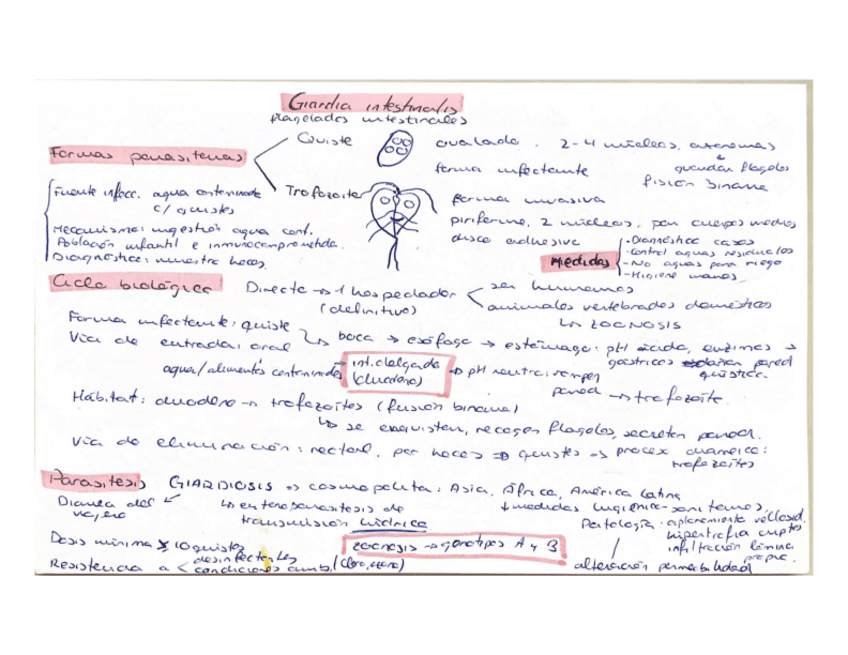 Giardia intestinalis
flagelados intestinales
Formas parasitarias
Quiste
ovalada, 2-4 núcleos, axonemas
guardan flagelos
forma infectante
fisión binaria
Trofozoito
forma invasiva
piriforme, 2 núcleos, par cuerpos medios
disco adhesivo
Fuente infecc. agua contaminada
c/ quistes
Mecanismo: ingestión agua cont.
Población infantil e inmunocomprometida.
Diagnóstico: muestra heces.
Medidas
- Diagnóstico casos
- Control aguas residuales
- No aguas para riego
- Higiene manos
Ciclo biológico
Directo → 1 hospedador
(definitivo)
ser humanos
animales vertebrados domésticos
↳ ZOONOSIS
Forma infectante: quiste
Vía de entrada: oral
↳ boca → esófago → estómago: pH ácido, enzimas →
gástricas pared
quística.
agua/alimentos contaminados
int. delgado
(duodeno)
→ pH neutro: rompen
pared → trofozoito.
Hábitat: duodeno → trofozoítos (fusión binaria)
↳ se enquistan, recogen flagelos, secretan pared.
Vía de eliminación: rectal, por heces ⇒ quistes → proces diarreico:
trofozoítos
Parasitosis
GIARDIOSIS → cosmopolita: Asia, África, América Latina
Diarrea del
viajero
↳ enteroparasitosis de
transmisión hídrica
↓ medidas higiénico-sanitarias,
Patología: aplanamiento vellosid.
hipertrofia criptas
infiltración lámina
propia.
alteración permeabilidad
Dosis mínima 10 quistes
zoonosis → genotipos A y B
Resistencia a <
desinfectantes
condiciones amb. (cloro, ozono)